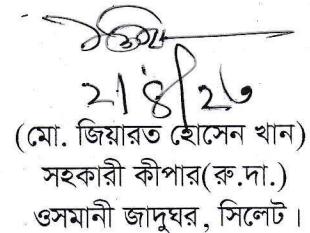 (মো. জিয়ারত হোসেন খান)
সহকারী কীপার(রু.দা.)
ওসমানী জাদুঘর, সিলেট।